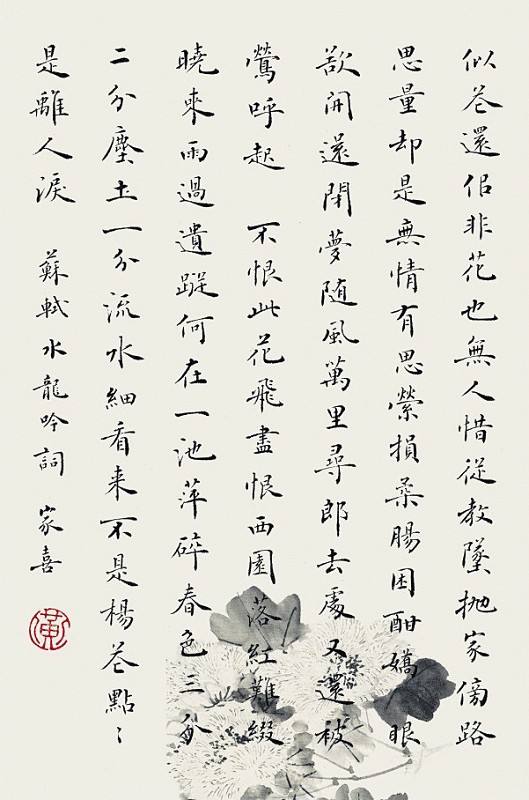 似花還佀非花也無人惜從教墜抛家傍路
思量却是無情有思縈損柔腸困酣嬌眼
欲開還閉夢随風萬里尋郎去處又還被
鶯呼起 不恨此花飛盡恨西園落紅難綴
曉來雨過遺蹤何在一池萍碎春色三分
二分塵土一分流水細看来不是楊花點〻
是離人淚 蘇軾水龍吟詞 家喜
黄